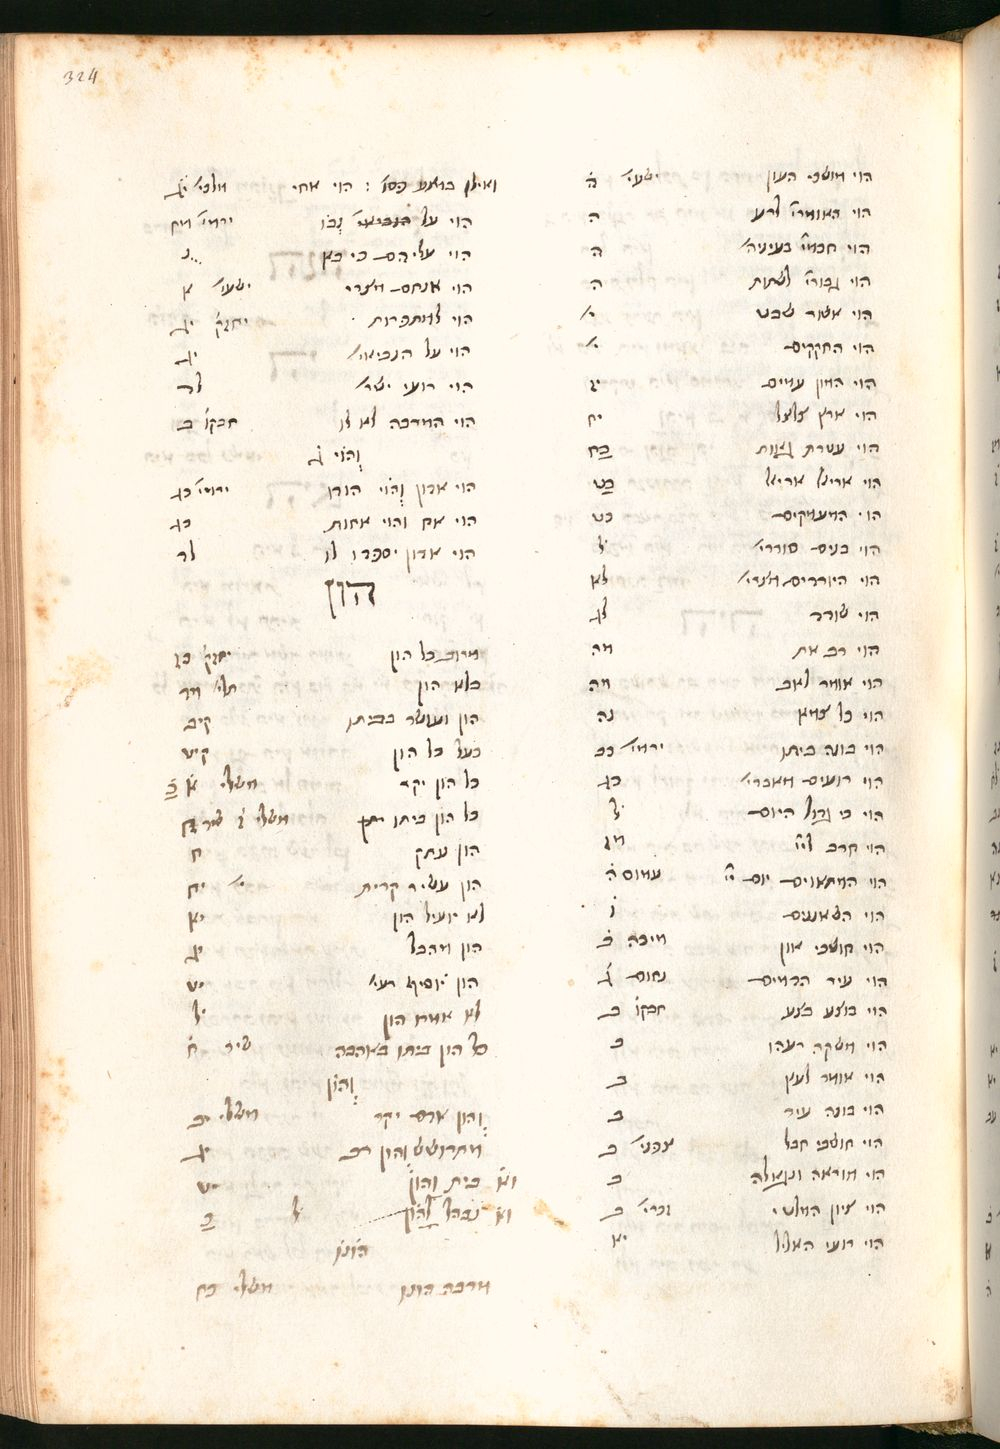 324
הוי מושכי העון ישעי' ה
הוי האומרי' לרע ה
הוי חכמי' בעיניה' ה
הוי גבורי' לשתות ה
הוי אשור שבט י'
הוי החקקים י'
הוי המון עמים יז
הוי ארץ צלצל יח
הוי עטרת גאות כח
הוי אריאל אריאל כט
הוי המעמקים כט
הוי בנים סוררי' ל'
הוי היורדים מצרי' לא
הוי שודד לג
הוי רב את מה
הוי אומר לאב מה
הוי כל צמא נה
הוי בונה ביתו ירמי' כב
הוי רועים מאבדי' כג
הוי כי גדול היום ל'
הוי חרב ליי' מז
הוי המתאוים יום יי' עמוס ה
הוי השאננים ו
הוי חושבי און מיכה ב
הוי עיר הדמים נחום ג
הוי בוצע בצע חבקו ב
הוי משקה רעהו ב
הוי אומר לעץ ב
הוי בונה עיר ב
הוי חושבי חבל צפני' ב
הוי מוראה ונגאלה
הוי ציון המלטי זכרי' ב
הוי רועי האליל יא
ואילן בראע פסו' : הוי אחי מלכי' יג
הוי על הנביאי' נבו ירמי' מח
הוי עליהם כי בא נ
הוי אנחם מצרי ישעי' א
הוי למתפרות יחזק' יג
הוי על הנביאי' יג
הוי רועי ישר' לד
הוי המרבה לא לו חבקו ב
והוי ג
הוי אדון והוי הודו ירמי' כב
הוי אח והוי אחות כב
הוי אדון יספדו לו לד
הון
מרוב כל הון יחזק' כז
בלא הון תלי' מד
הון ועושר בביתו קיב
כעל כל הון קיט
כל הון יקר משלי א כד
כל הון ביתו יתן משלי ו
הון עתק ח
הון עשיר קרית י' יח
לא יועיל הון יא
הון מהבל יג
הון יוסיף רעי' יט
לא אמרו הון ל'
כל הון ביתו באהבה שיר ח
והון
והון אדם יקר משלי יב
מתרושש והון רב יג
וא' בית והון יט
וא' נבהל להון
הונו
מרבה הונו משלי כח